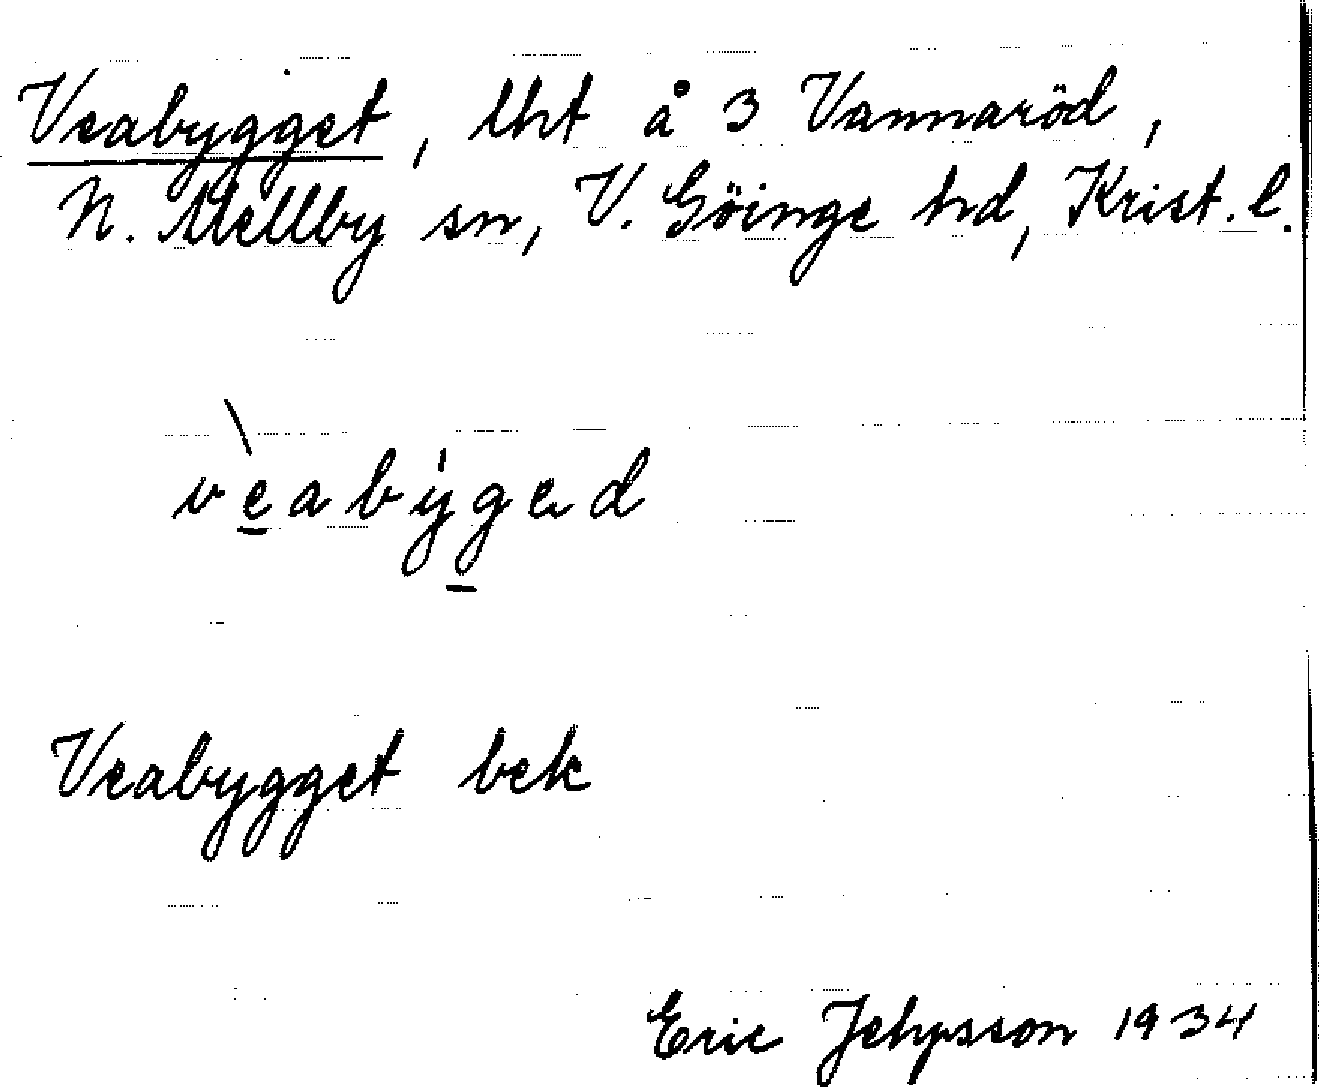 Veabygget, lht å 3 Vannaröd,
N. Mellby sn, V. Göinge hd, Krist. l.
vèabýged
Veabygget bek
Eric Jepsson 1934